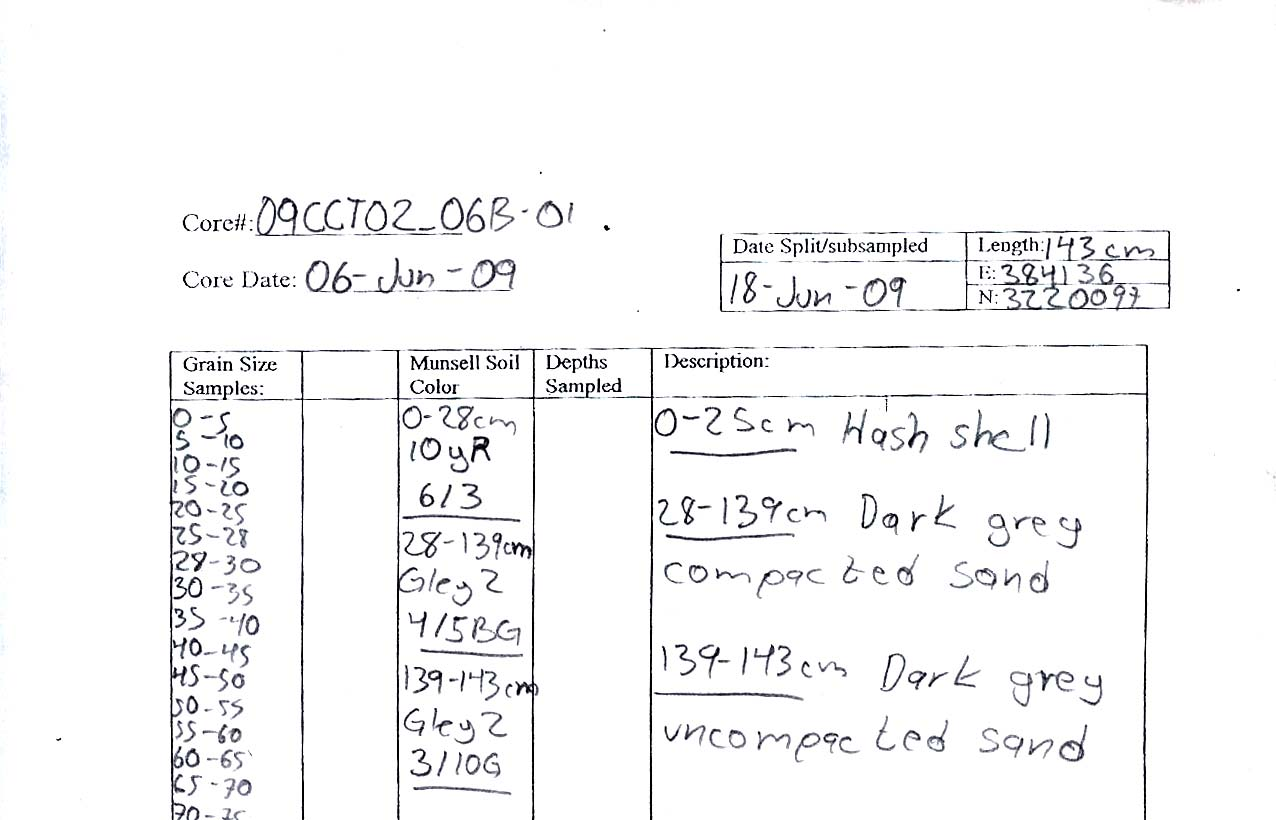 Core#: 09CCT02_06B-01
Core Date: 06-Jun-09
Date Split/subsampled
18-Jun-09
Length: 143 cm
E: 384136
N: 3220097
Grain Size
Samples:
Munsell Soil
Color
Depths
Sampled
Description:
0-5
5-10
10-15
15-20
20-25
25-28
28-30
30-35
35-40
40-45
45-50
50-55
55-60
60-65
65-70
70-75
0-28cm
10yR
6/3
28-139cm
Gley2
4/5BG
139-143cm
Gley2
3/10G
0-25cm Hash shell
28-139cm Dark grey
compacted sand
139-143cm Dark grey
uncompacted sand